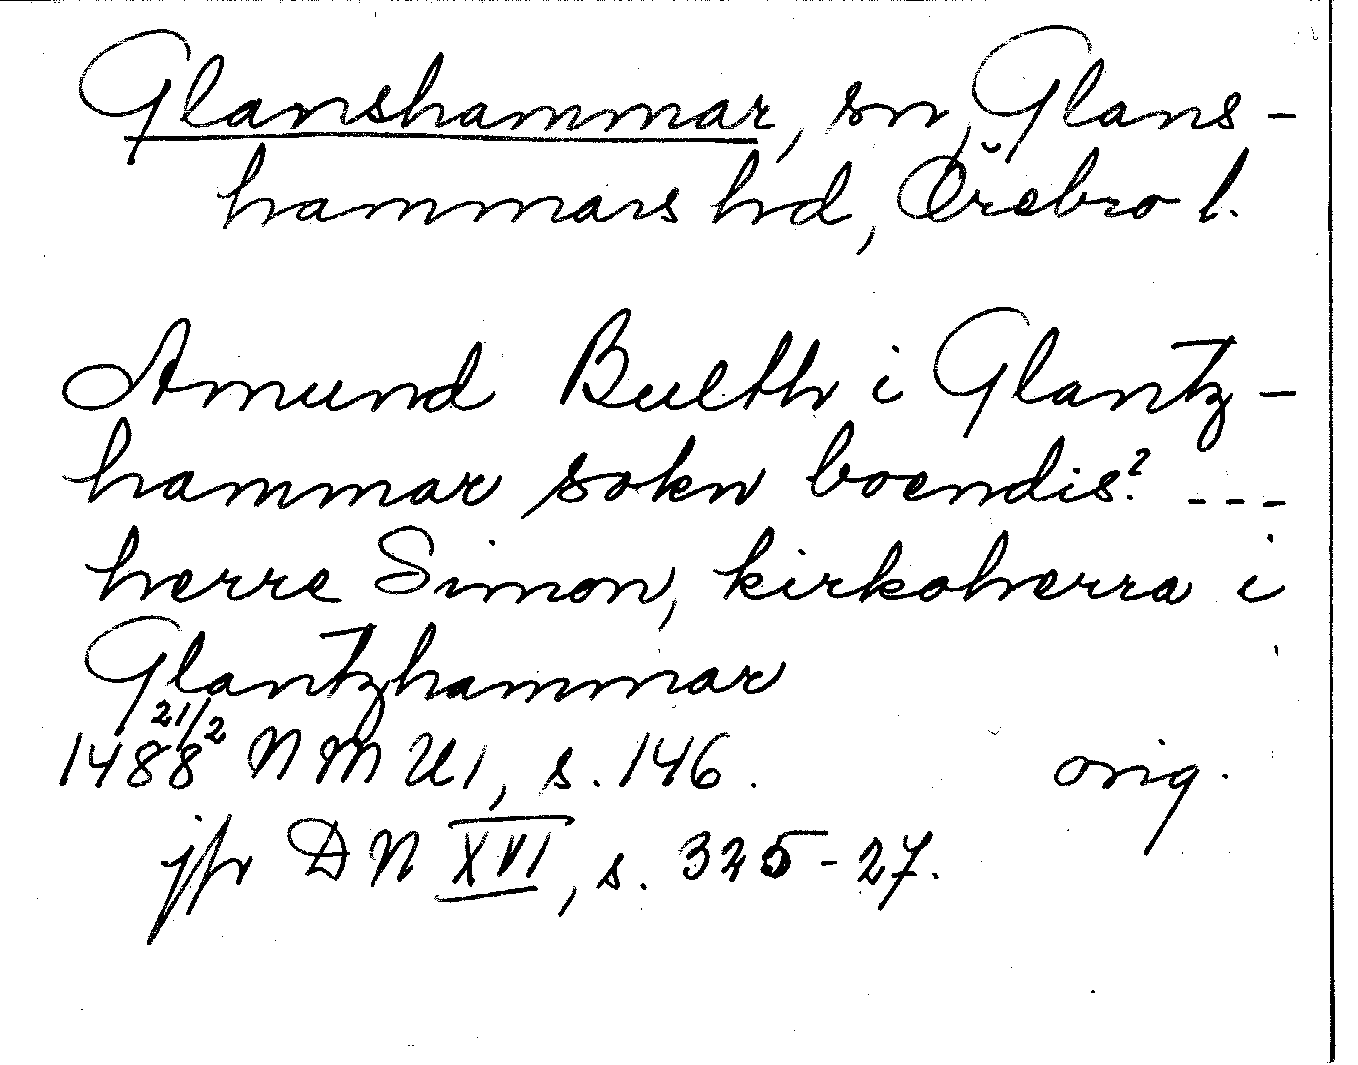 Glanshammar, sn, Glans-
hammars hd, Örebro l.
Amund Bulth i Glantz-
hammar sokn boendis? ---
herre Simon, kirkoherra i
Glantzhammar
1488 21/2 NMU1, s. 146. orig.
jfr DN XVI, s. 325-27.